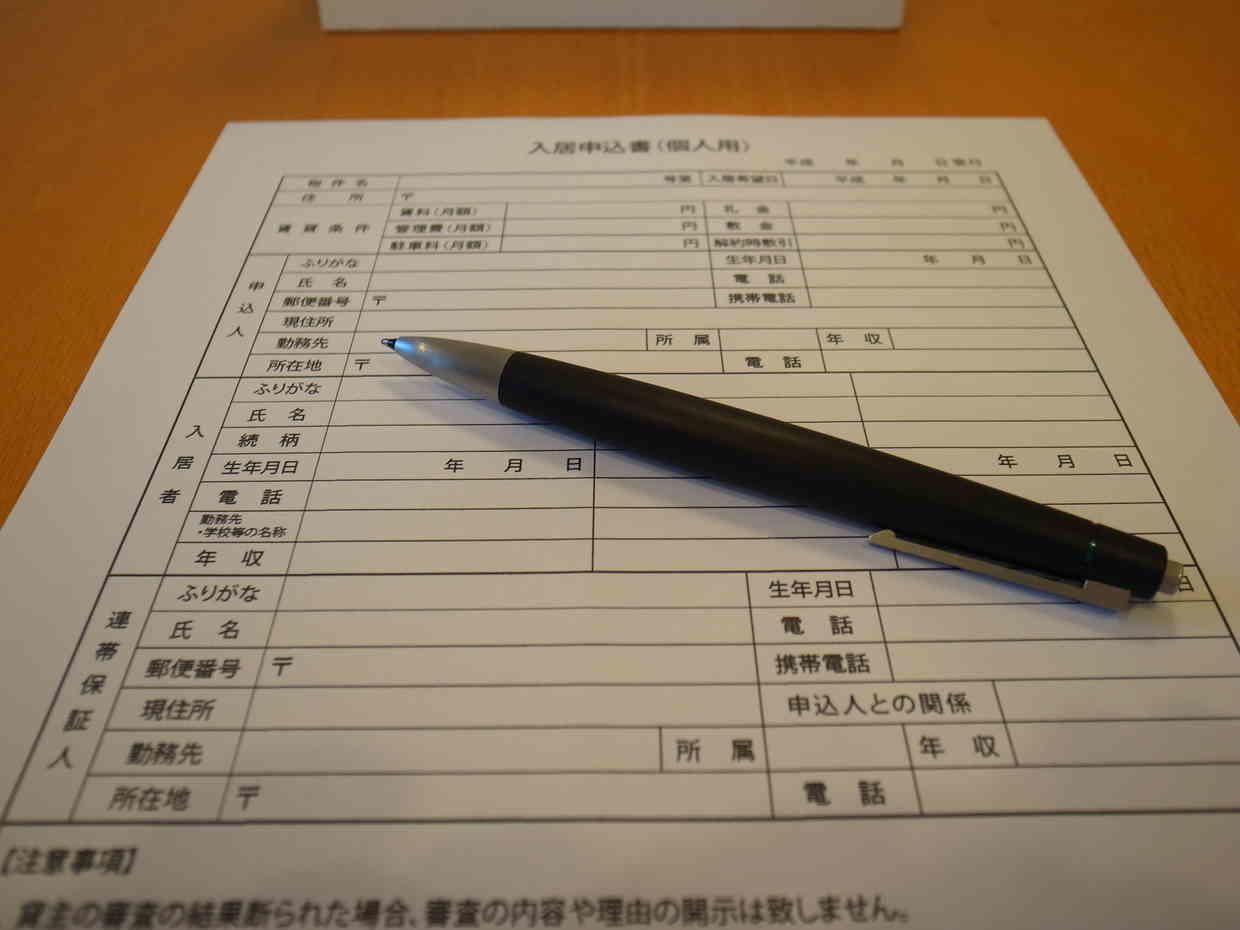 入居申込書(個人用)
平成 年 月 日受付
物件名 号室 入居希望日 平成 年 月 日
住所 〒
賃貸条件 賃料(月額) 円 礼金 円
管理費(月額) 円 敷金 円
駐車料(月額) 円 解約時敷引 円
申込人 ふりがな 生年月日 年 月 日
氏名 電話
郵便番号 〒 携帯電話
現住所
勤務先 所属 年収
所在地 〒 電話
入居者 ふりがな
氏名
続柄
生年月日 年 月 日 年 月 日
電話
勤務先
・学校等の名称
年収
連帯保証人 ふりがな 生年月日 日
氏名 電話
郵便番号 〒 携帯電話
現住所 申込人との関係
勤務先 所属 年収
所在地 〒 電話
【注意事項】
貸主の審査の結果断られた場合、審査の内容や理由の開示は致しません。